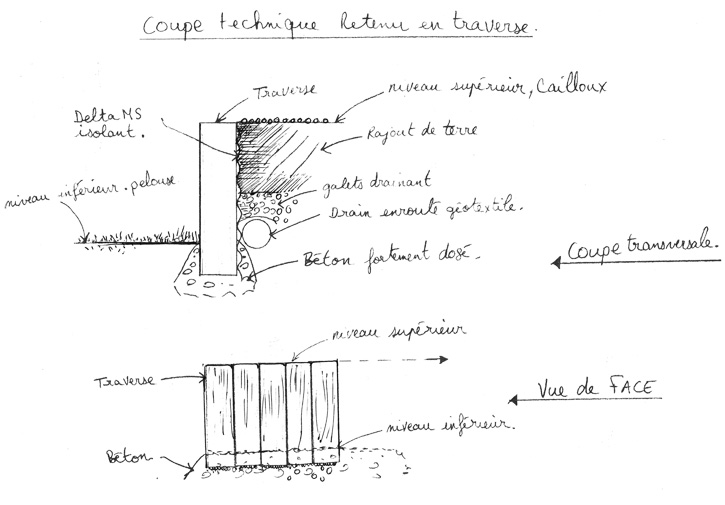 Coupe technique Retenu en traverse.
Traverse
niveau supérieur, Cailloux
Delta MS
isolant.
Rajout de terre
niveau inférieur. pelouse
galets drainant
Drain enroute géotextile.
Béton fortement dosé.
Coupe transversale.
niveau supérieur
Traverse
Vue de FACE
niveau inférieur.
Béton